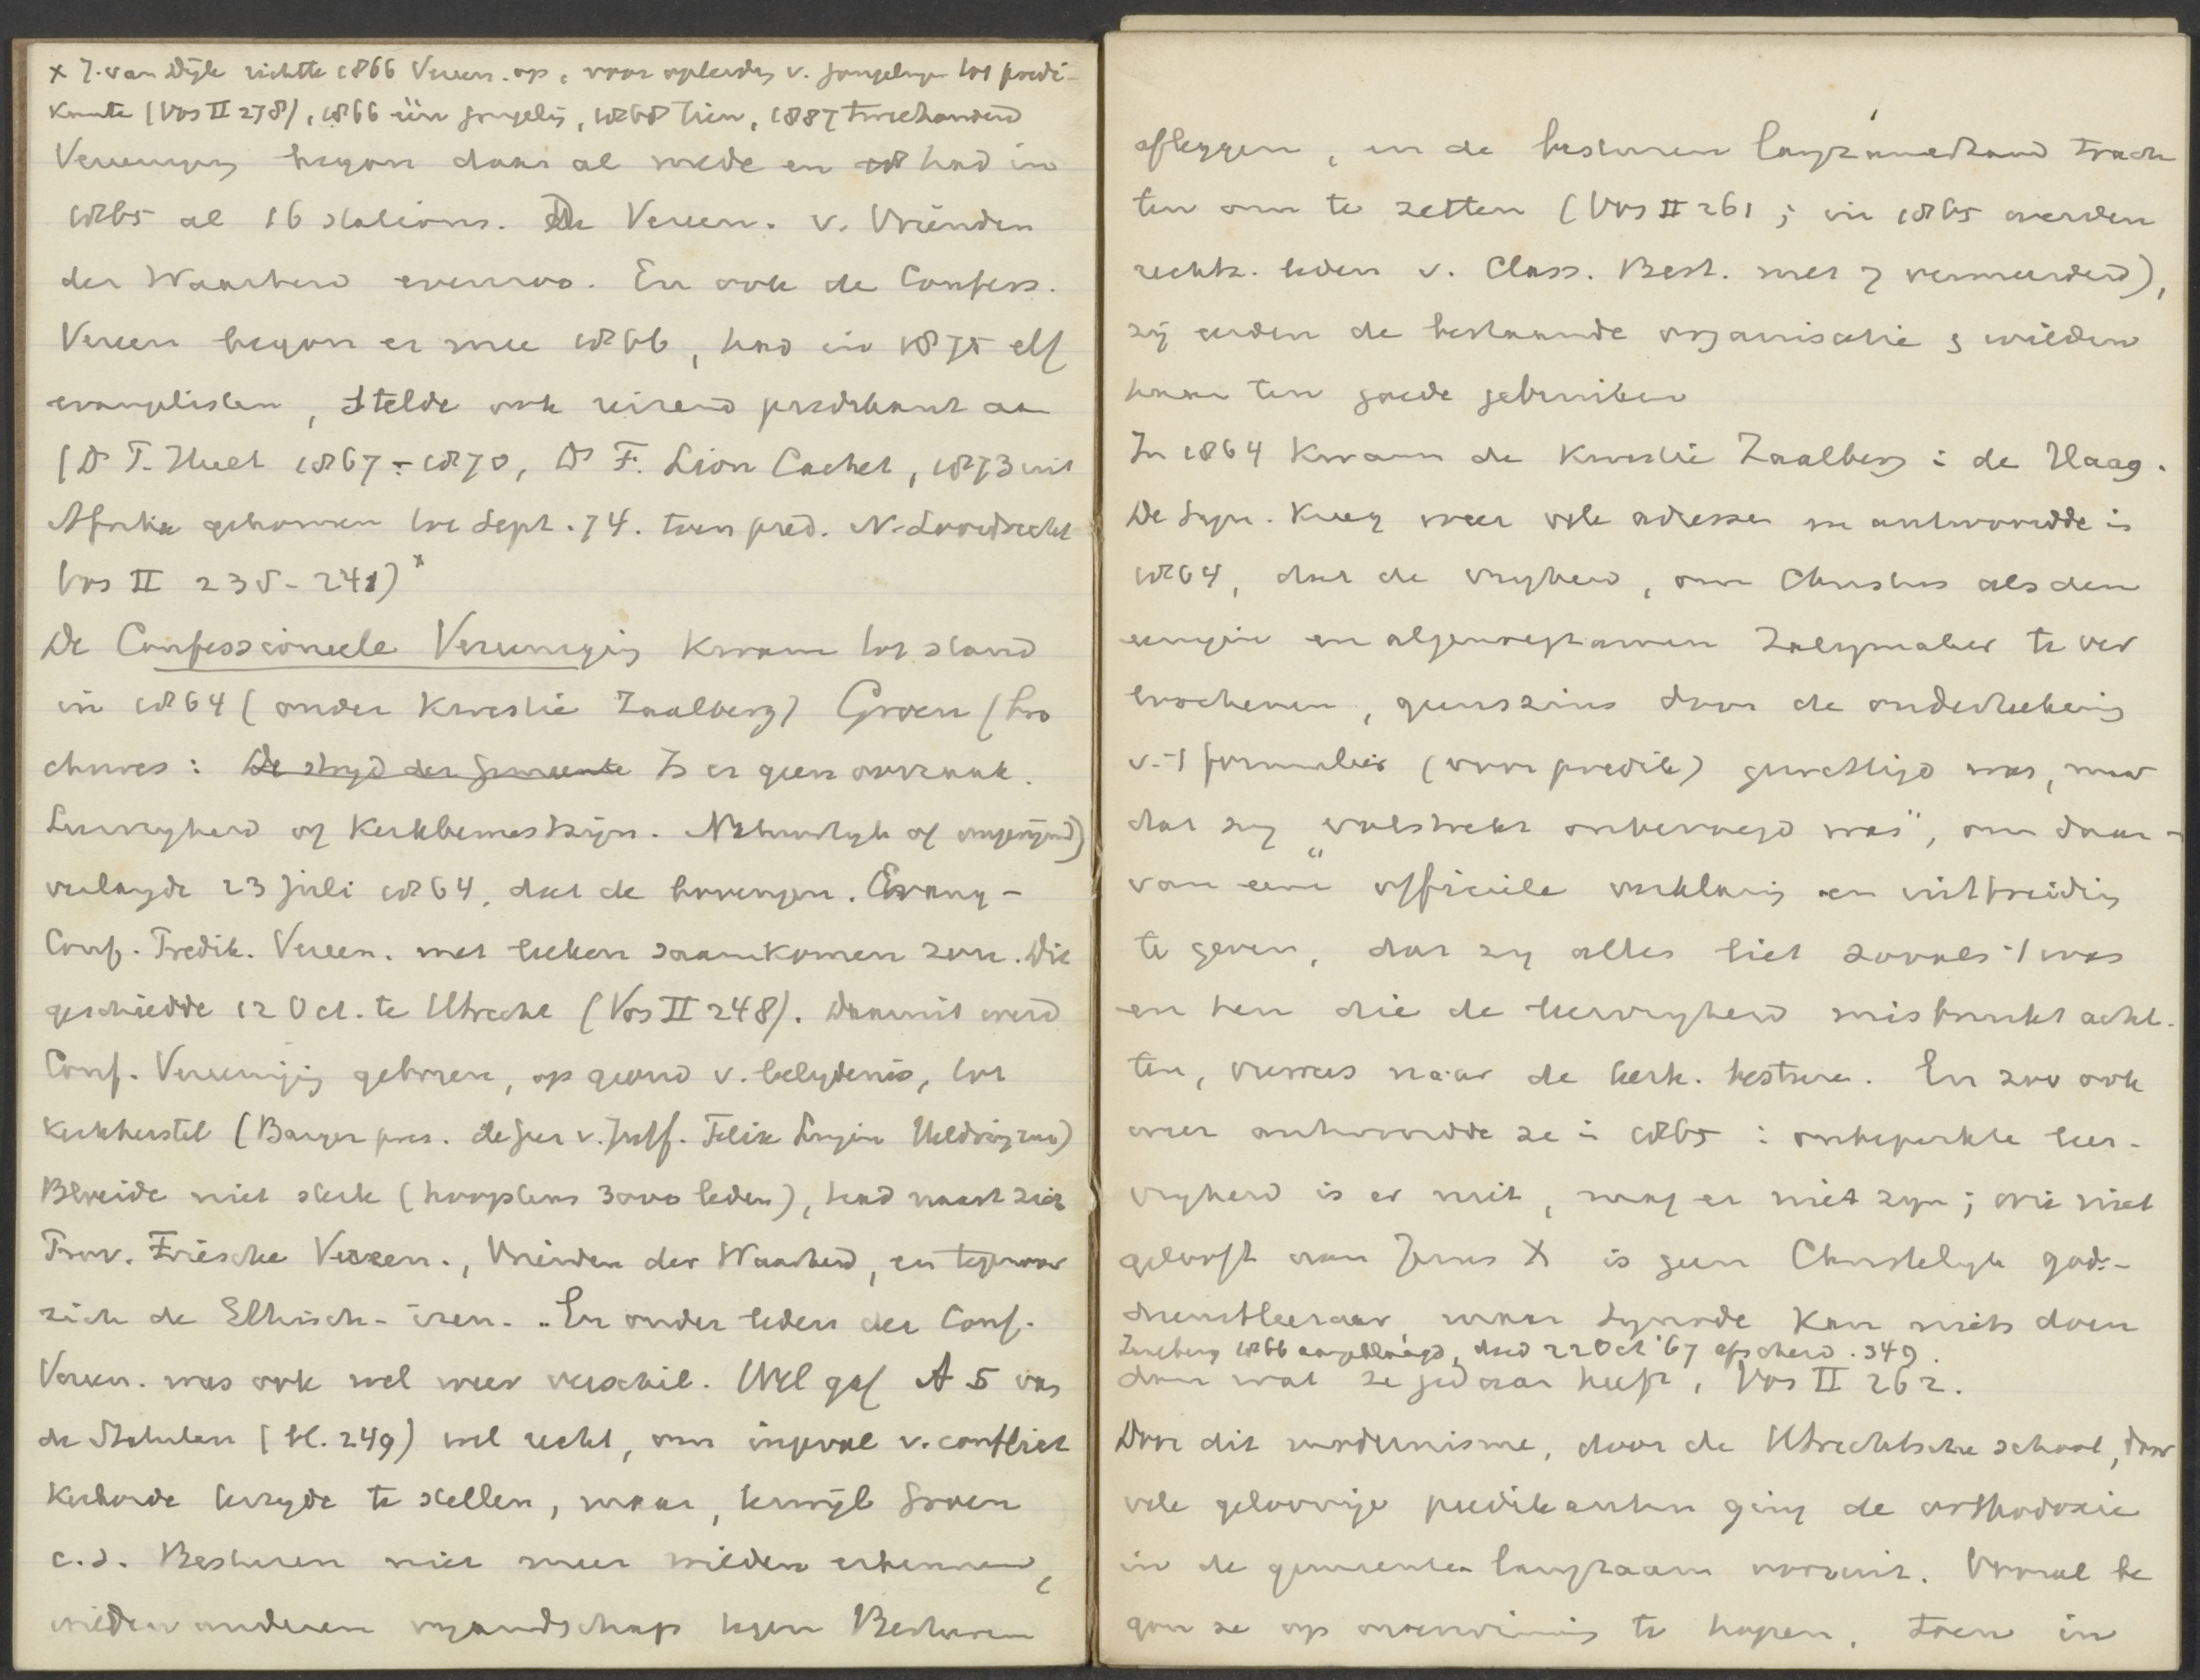 x J. van Dijk richtte 1866 Vereen. op, voor opleiding v. jongelingen tot predi-
kanten (Vos II 278), 1866 één jongeling, 1868 tien, 1887 tweehonderd
Vereeniging begon daar al mede en had in
1865 al 16 stations. De Vereen. v. Vrienden
der Waarheid evenzoo. En ook de Confess.
Vereen begon er mee 1866, had in 1875 elf
evangelisten, stelde ook reizend predikant aan
(Ds T. Huet 1867-1870, Ds F. Lion Cachet, 1873 uit
Afrika gekomen tot Sept. 74. toen pred. N-Loosdrecht
Vos II 235-241) x
De Confessioneele Vereeniging kwam tot stand
in 1864 (onder kwestie Zaalberg) Groen (bro
chures: De strijd der gemeente Is er geen oorzaak.
Leervrijheid of Kerkbemoeizijn. Natuurlijk of ongerijmd)
verlangde 23 Juli 1864, dat de bovengen. Evang-
Conf. Predik. Vereen. met leeken saamkomen zou. Dit
geschiedde 12 Oct. te Utrecht (Vos II 248). Daaruit werd
Conf. Vereeniging geboren, op grond v. belydenis, tot
kerkherstel (Barger pres. de Geer v. Jutf. Felix Singendonck Heldring enz)
Bloeide niet sterk (hoogstens 3000 leden), had naast zich
Prov. Friesche Vereen., Vrienden der Waarheid, en tegenover
zich de Ethisch-iren. En onder leden der Conf.
Vereen. was ook wel weer verschil. Wel gaf A 5 van
de Statuten (bl. 249) wel recht, om ingeval v. conflict
Kerkorde terzyde te stellen, maar, terwijl Groen
c.s. Besturen niet meer wilden erkennen,
wilden anderen vyandschap tegen Besturen
afleggen, en de besturen langzamerhand trach
ten om te zetten (Vos II 261; in 1865 werden
rechtz. leden v. Class. Best. met 7 vermeerderd),
zij eerden de bestaande organisatie & wilden
haar ten goede gebruiken
In 1864 kwam de kwestie Zaalberg in de Haag.
De Syn. kreeg weer vele adressen en antwoordde in
1864, dat de vryheid, om Christus als den
eenigen en algenoegzamen Zaligmaker te ver
loochenen, geenszins door de onderteekening
v. 't formulier (voor predik) gewettigd was, maar
dat zy "volstrekt onbevoegd was", om daar-
van eene "officieele verklaring en uitbreiding
te geven, dat zy alles liet zooals 't was
en hen die de leervryheid misbruikt acht-
ten, verwees naar de kerk. besturen. En zoo ook
weer antwoordde ze in 1865: onbeperkte leer-
vryheid is er niet, mag er niet zyn; wie niet
gelooft aan Jezus X is geen Christelyk gods-
dienstleeraar maar Synode kan niets doen
Zaalberg 1866 aangeklaagd, deed 22 Oct '67 afscheid. 349.
dan wat ze gedaan heeft, Vos II 262.
Door dit modernisme, door de Utrechtsche school, door
vele geloovige predikanten ging de orthodoxie
in de gemeenten langzaam vooruit. Vooral be
gon ze op overwinning te hopen, toen in